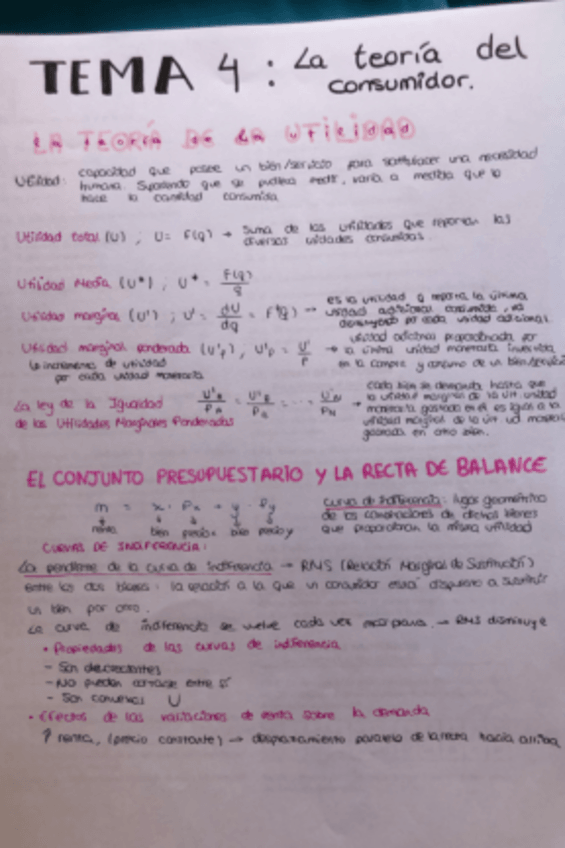 TEMA 4: La teoría del
consumidor.
LA TEORÍA DE LA UTILIDAD
Utilidad: capacidad que posee un bien/servicio para satisfacer una necesidad
humana. Suponiendo que se pudiera medir, varía a medida que lo
hace la cantidad consumida
Utilidad total (U); U = F(q) → Suma de las utilidades que reportan las
diversas unidades consumidas.
Utilidad Media (U*); U* = F(q)/q
Utilidad marginal (U'); U' = dU/dq = F'(q) → es la utilidad q reporta la última
unidad adicional consumida, va
disminuyendo por cada unidad adicional.
Utilidad marginal ponderada (U'p), U'p = U'/P → utilidad adicional proporcionada por
la última unidad monetaria invertida
en la compra y consumo de un bien/servicio
Lo incremento de utilidad
por cada unidad monetaria
La ley de la Igualdad
de las Utilidades Marginales Ponderadas
U'A/PA = U'B/PB = ... = U'N/PN →
cada bien se demanda hasta que
la utilidad marginal de la últ. unidad
monetaria gastada en él es igual a la
utilidad marginal de la últ ud monetaria
gastada en otro bien.
EL CONJUNTO PRESUPUESTARIO y LA RECTA DE BALANCE
m = x · Px + y · Py
renta bien precio x bien precio y
curva de indiferencia: lugar geométrico
de las combinaciones de dichos bienes
que proporcionan la misma utilidad
CURVAS DE INDIFERENCIA:
La pendiente de la curva de indiferencia → RMS (Relación Marginal de Sustitución)
entre los dos bienes: la relación a la que un consumidor está dispuesto a sustituir
un bien por otro.
La curva de indiferencia se vuelve cada vez más plana. → RMS disminuye
• Propiedades de las curvas de indiferencia
- Son decrecientes
- No pueden cortarse entre sí
- Son convexas U
• Efectos de las variaciones de renta sobre la demanda
↑ renta, (precio constante) → desplazamiento paralelo de la recta hacia arriba